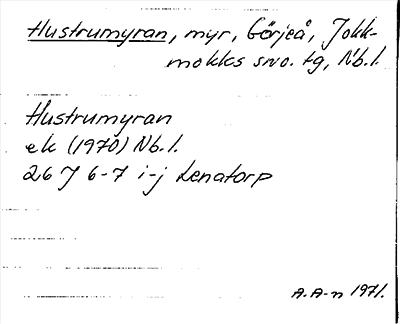 Hustrumyran, myr, Görjeå, Jokk-
mokks svo. tg, Nb.l.
Hustrumyran
ek (1970) Nb.l.
26 J 6-7 i-j Lenatorp
A.A-n 1971.